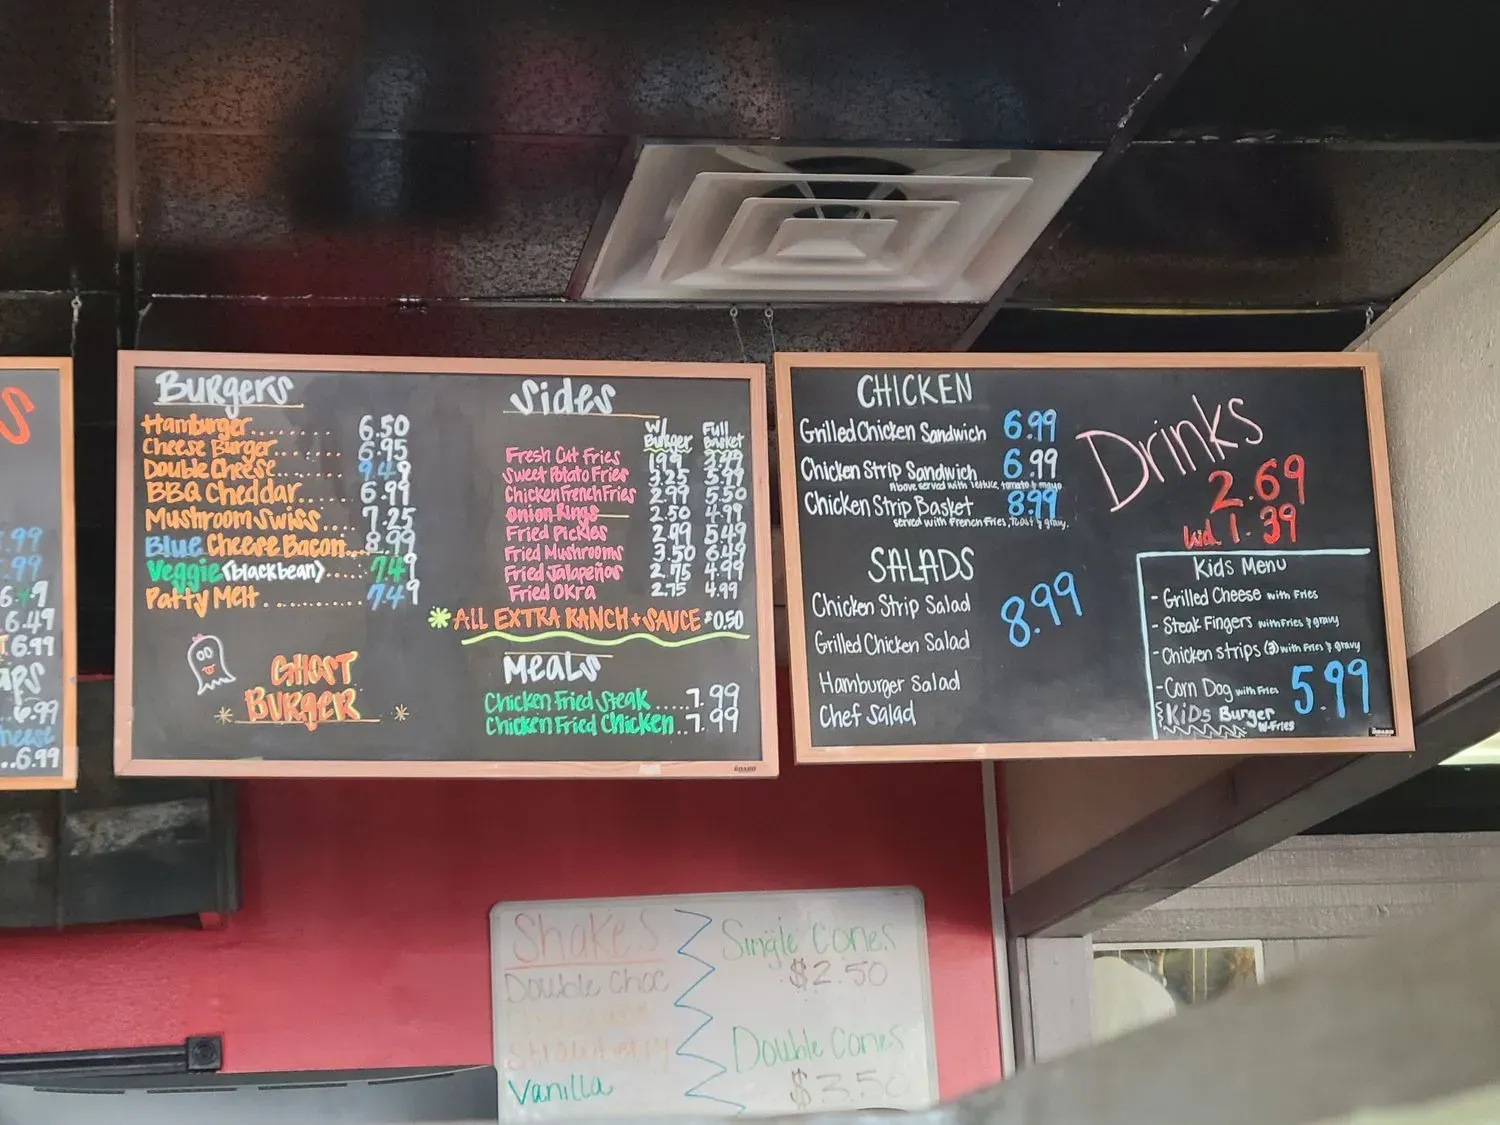 S
.99
.99
6.49
6.49
6.99
aps
6.99
heese
..6.99
Burgers
Hamburger........ 6.50
Cheese Burger........ 6.95
Double Cheese........ 9.49
BBQ Cheddar..... 6.99
Mushroom Swiss.... 7.25
Blue Cheese Bacon... 8.99
Veggie (black bean)..... 7.49
Patty Melt .......... 7.49
GHOST
BURGER
Sides
W/ Burger Full Basket
Fresh Cut Fries 1.99 3.99
Sweet Potato Fries 3.25 5.99
Chicken French Fries 2.99 5.50
Onion Rings 2.50 4.99
Fried Pickles 2.99 5.49
Fried Mushrooms 3.50 6.49
Fried Jalapeños 2.75 4.99
Fried Okra 2.75 4.99
* ALL EXTRA RANCH + SAUCE $0.50
Meals
Chicken Fried Steak .....7.99
Chicken Fried Chicken..7.99
CHICKEN
Grilled Chicken Sandwich 6.99
Chicken Strip Sandwich 6.99
Above served with lettuce, tomato & mayo
Chicken Strip Basket 8.99
served with French Fries, Toast & gravy.
SALADS
Chicken Strip Salad
Grilled Chicken Salad
8.99
Hamburger Salad
Chef Salad
Drinks
2.69
1.39
Kids Menu
- Grilled Cheese with Fries
- Steak Fingers with Fries & gravy
- Chicken strips (3) with Fries & gravy
- Corn Dog with Fries
5.99
KiDs Burger
W-Fries
Shakes
Double Choc
Strawberry
Vanilla
Single Cones
$2.50
Double Cones
$3.50